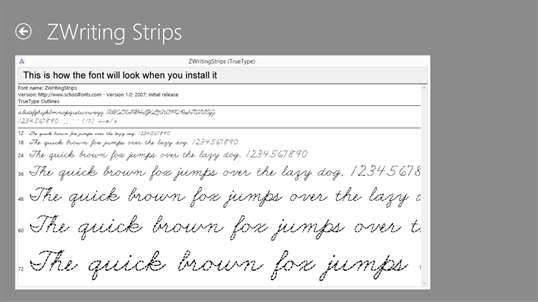 ZWriting Strips
ZWritingStrips (TrueType)
This is how the font will look when you install it
Font name: ZWritingStrips
Version: http://www.schoolfonts.com - Version 1.0; 2007; initial release
TrueType Outlines
abcdefghijklmnopqrstuvwxyz ABCDEFGHIJKLMNOPQRSTUVWXYZ
1234567890
12 The quick brown fox jumps over the lazy dog. 1234567890
18 The quick brown fox jumps over the lazy dog. 1234567890
24 The quick brown fox jumps over the lazy dog. 1234567890
36 The quick brown fox jumps over the lazy dog. 12345678
48 The quick brown fox jumps over the lazy d
60 The quick brown fox jumps over t
72 The quick brown fox jumps